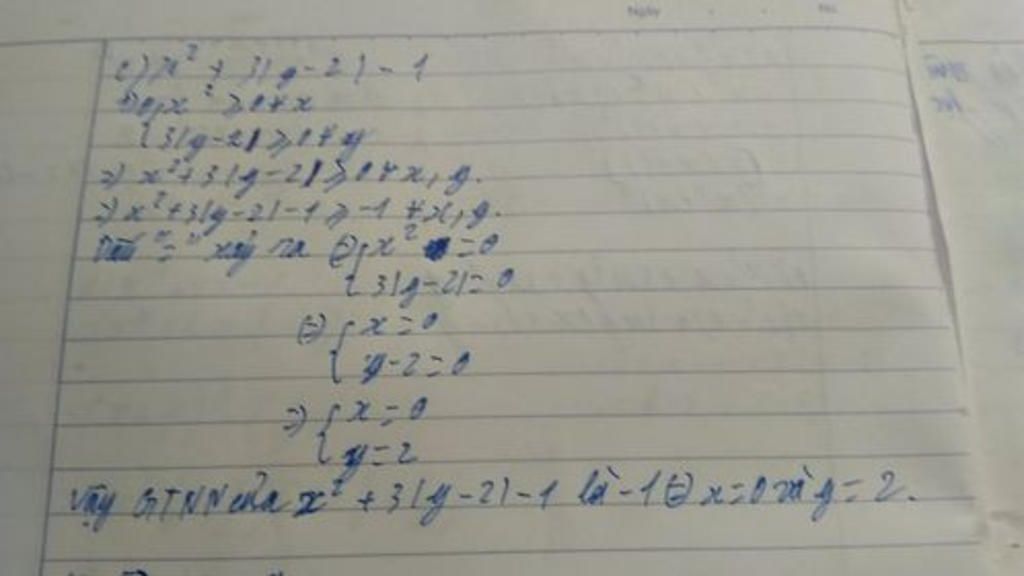 c) x² + 3|y-2| - 1
Do { x² ≥ 0 ∀ x
{ 3|y-2| ≥ 0 ∀ y
=> x² + 3|y-2| ≥ 0 ∀ x, y.
=> x² + 3|y-2| - 1 ≥ -1 ∀ x, y.
Dấu "=" xảy ra <=> { x² = 0
{ 3|y-2| = 0
<=> { x = 0
{ y - 2 = 0
=> { x = 0
{ y = 2
Vậy GTNN của x² + 3|y-2| - 1 là -1 <=> x = 0 và y = 2.